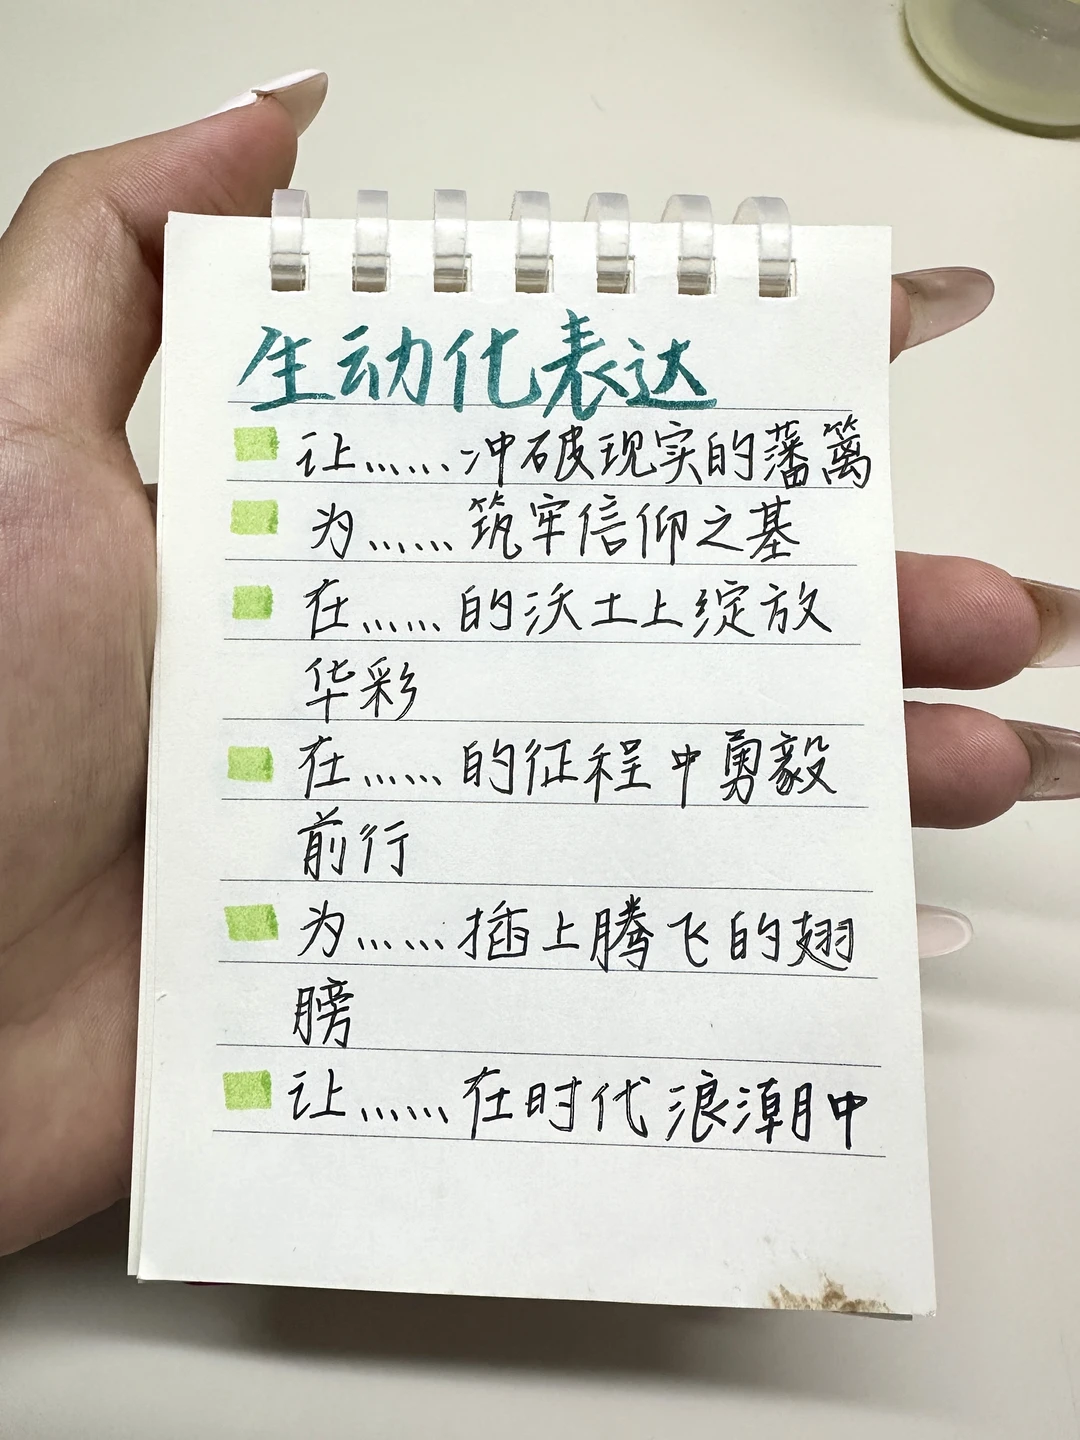 生动化表达
让……冲破现实的藩篱
为……筑牢信仰之基
在……的沃土上绽放
华彩
在……的征程中勇毅
前行
为……插上腾飞的翅
膀
让……在时代浪潮中